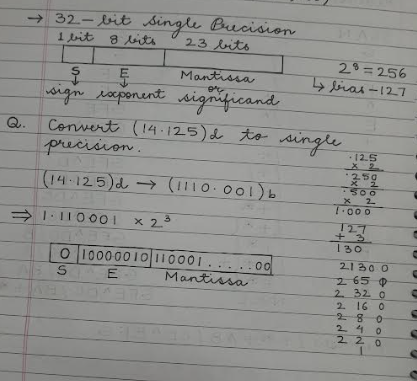 → 32-bit Single Precision
1 bit 8 bits 23 bits
S E Mantissa
or
sign exponent significand
2⁸ = 256
↳ bias - 127
Q. Convert (14.125)d to single
precision.
(14.125)d → (1110.001)b
⇒ 1.110001 × 2³
0 10000010 110001......00
S E Mantissa
.125
× 2
.250
× 2
.500
× 2
1.000
127
+ 3
130
2 130 0
2 65
2 32 0
2 16 0
2 8 0
2 4 0
2 2 0
1